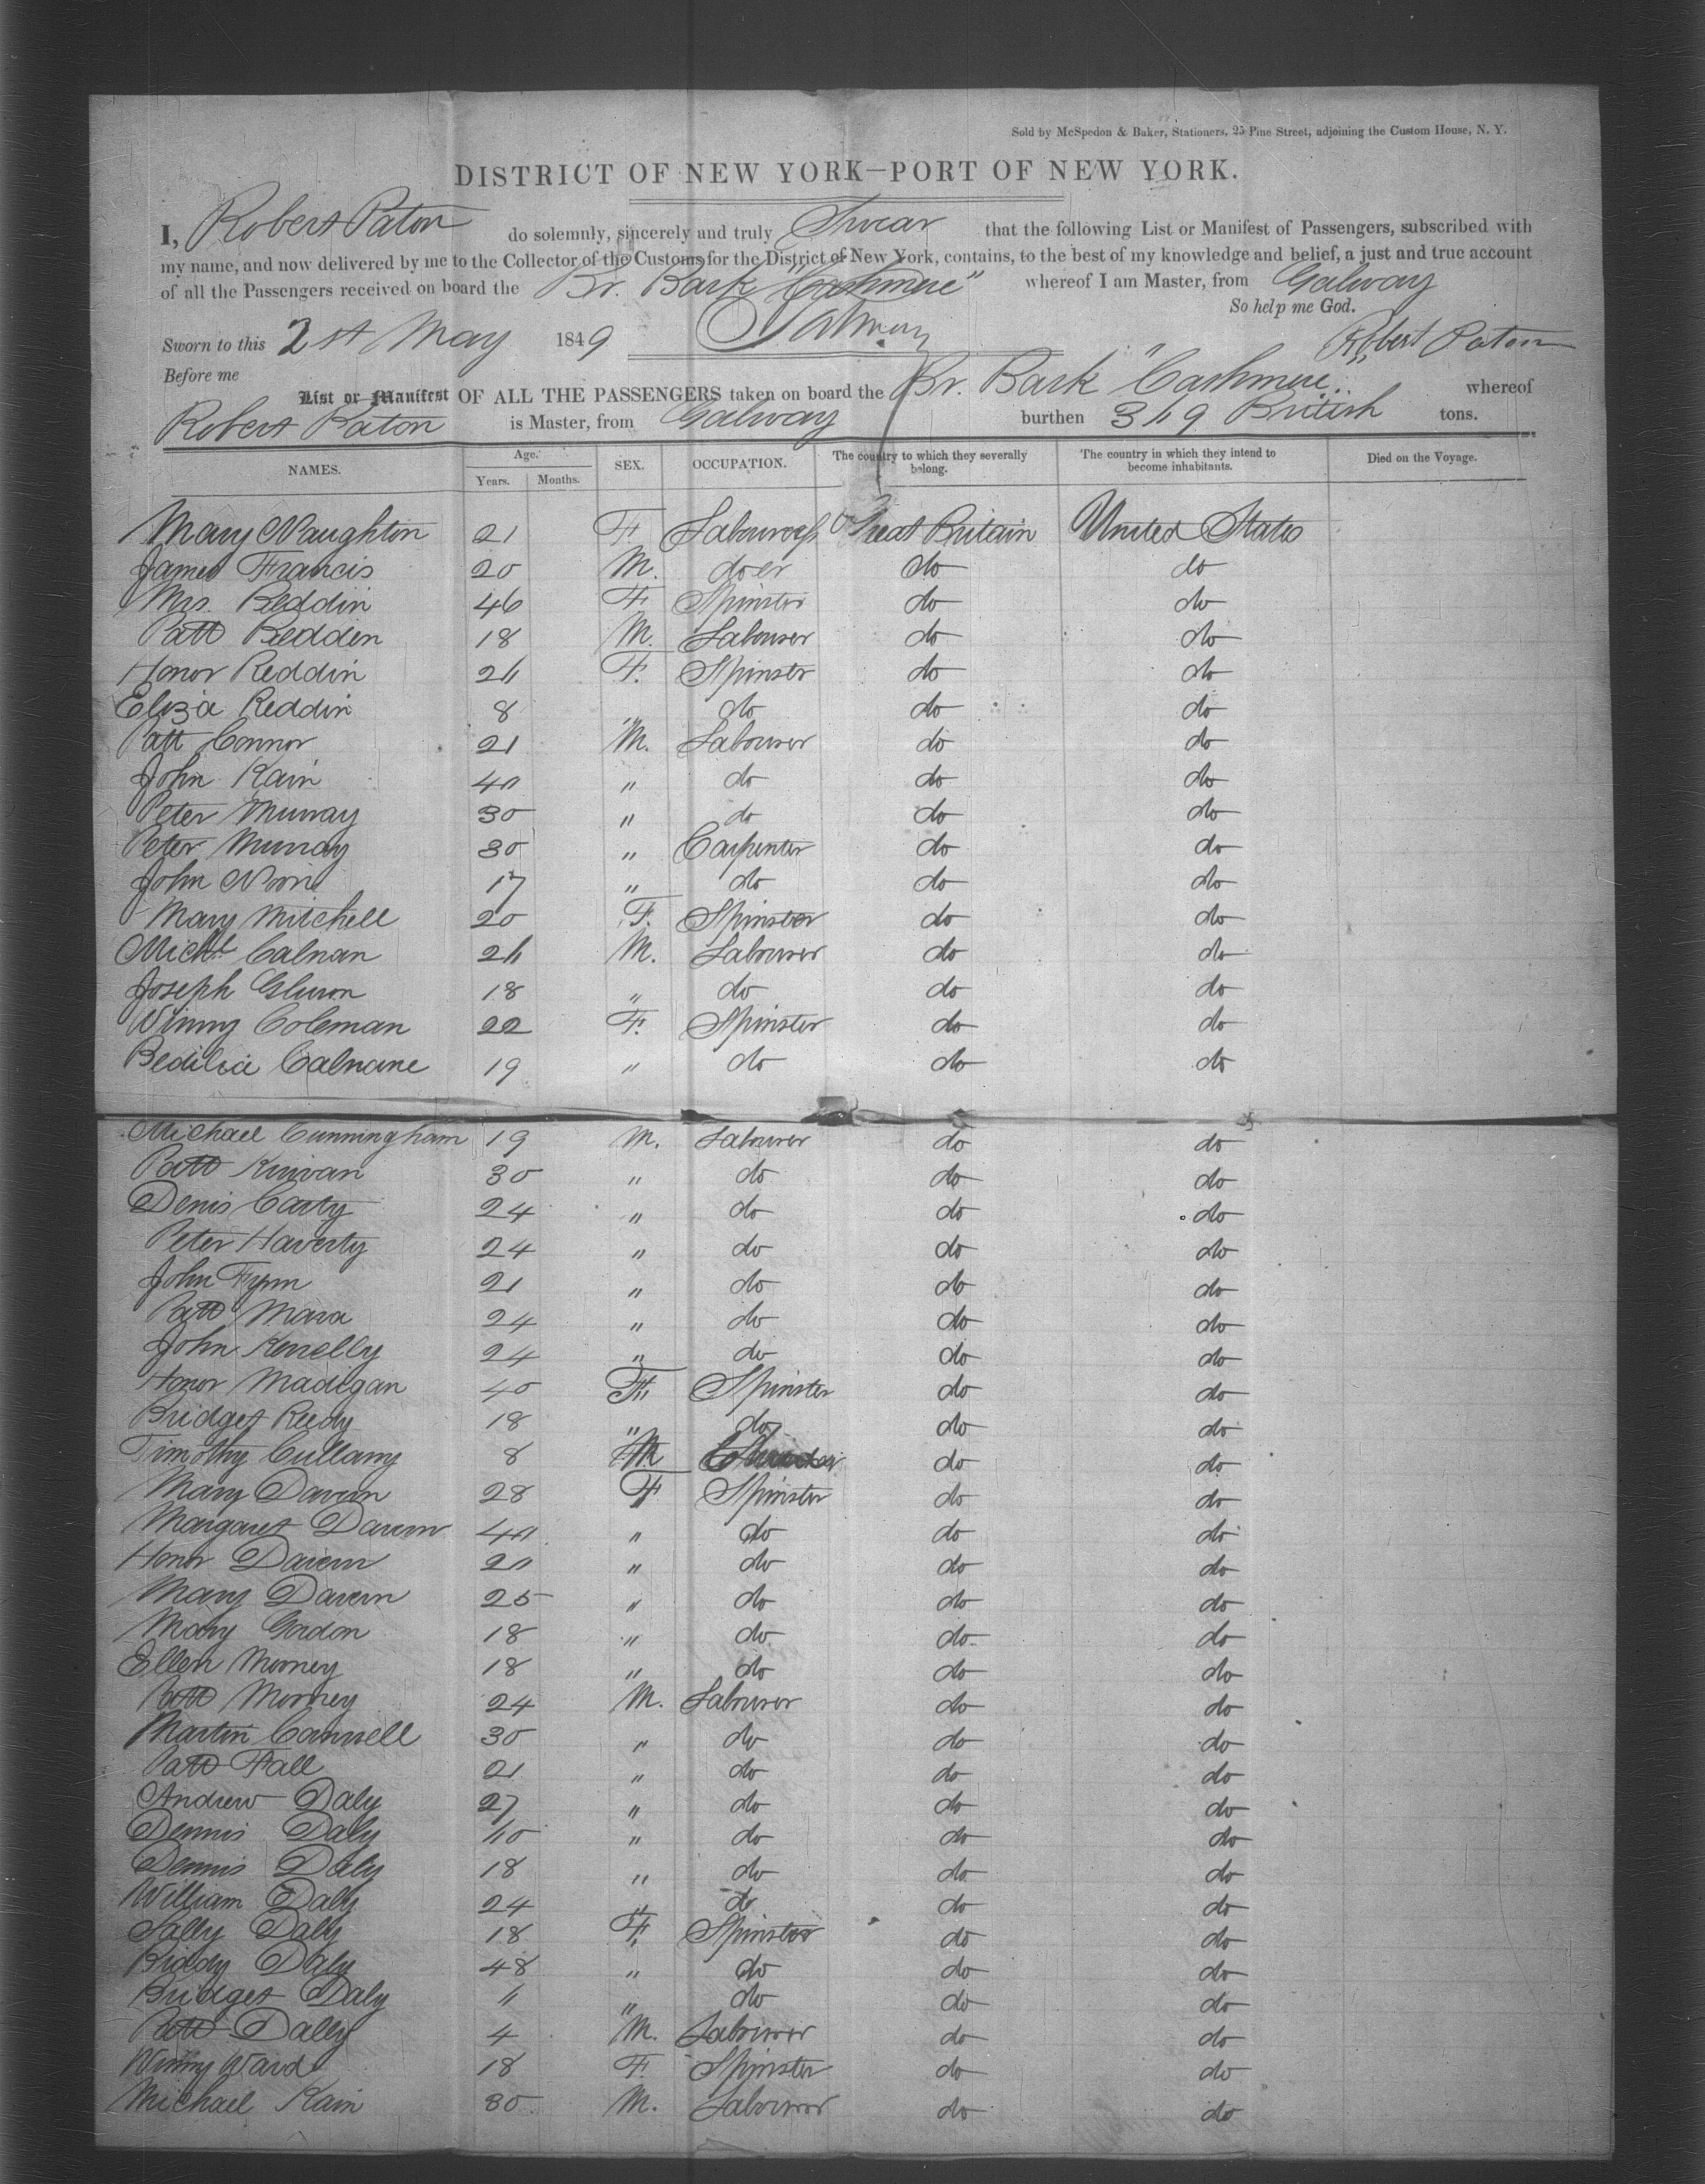 Sold by McSpedon & Baker, Stationers, 25 Pine Street, adjoining the Custom House, N. Y.
DISTRICT OF NEW YORK—PORT OF NEW YORK.
I, Robert Paton do solemnly, sincerely and truly Swear that the following List or Manifest of Passengers, subscribed with
my name, and now delivered by me to the Collector of the Customs for the District of New York, contains, to the best of my knowledge and belief, a just and true account
of all the Passengers received on board the Br. Bark "Cashmere" whereof I am Master, from Galway
So help me God.
Sworn to this 21st May 1849 Robert Paton
Before me
List or Manifest OF ALL THE PASSENGERS taken on board the Br. Bark "Cashmere" whereof
Robert Paton is Master, from Galway burthen 349 British tons.
NAMES. Age. Years. Months. SEX. OCCUPATION. The country to which they severally belong. The country in which they intend to become inhabitants. Died on the Voyage.
Mary Naughton 21 F Great Britain United States
James Francis 20 M. do do do
Mrs. Reddin 46 F Spinster do do
Patt Reddin 18 M. Labourer do do
Honor Reddin 24 F. Spinster do do
Eliza Reddin 8 " do do do
Patt Connor 21 M. Labourer do do
John Kain 40 " do do do
Peter Murray 30 " do do do
Peter Murray 30 " Carpenter do do
John 17 " do do do
Mary Mitchell 20 F. Spinster do do
Michl Calnan 24 M. Labourer do do
Joseph 18 " do do do
Winny Coleman 22 F. Spinster do do
Bedilia Calnane 19 " do do do
Michael Cunningham 19 M. Labourer do do
Patt Kirwan 30 " do do do
Denis Carty 24 " do do do
Peter Haverty 24 " do do do
John Fynn 21 " do do do
Patt Mara 24 " do do do
John Kenelly 24 " do do do
Honor Madigan 40 F. Spinster do do
Bridget Reedy 18 " do do do
Timothy Cullany 8 M do do
Mary Davern 28 F Spinster do do
Margaret Davern 40 " do do do
Honor Davern 20 " do do do
Mary Davern 25 " do do do
Mary Gordon 18 " do do do
Ellen Mooney 18 " do do do
Patt Mooney 24 M. Labourer do do
Martin Cannell 30 " do do do
Patt Fall 21 " do do do
Andrew Daly 27 " do do do
Dennis Daly 40 " do do do
Dennis Daly 18 " do do do
William Daly 24 " do do do
Sally Daly 18 F. Spinster do do
Biddy Daly 48 " do do do
Bridget Daly 11 " do do do
Patt Daly 4 M. Labourer do do
Winny Ward 18 F. Spinster do do
Michael Kain 30 M. Labourer do do